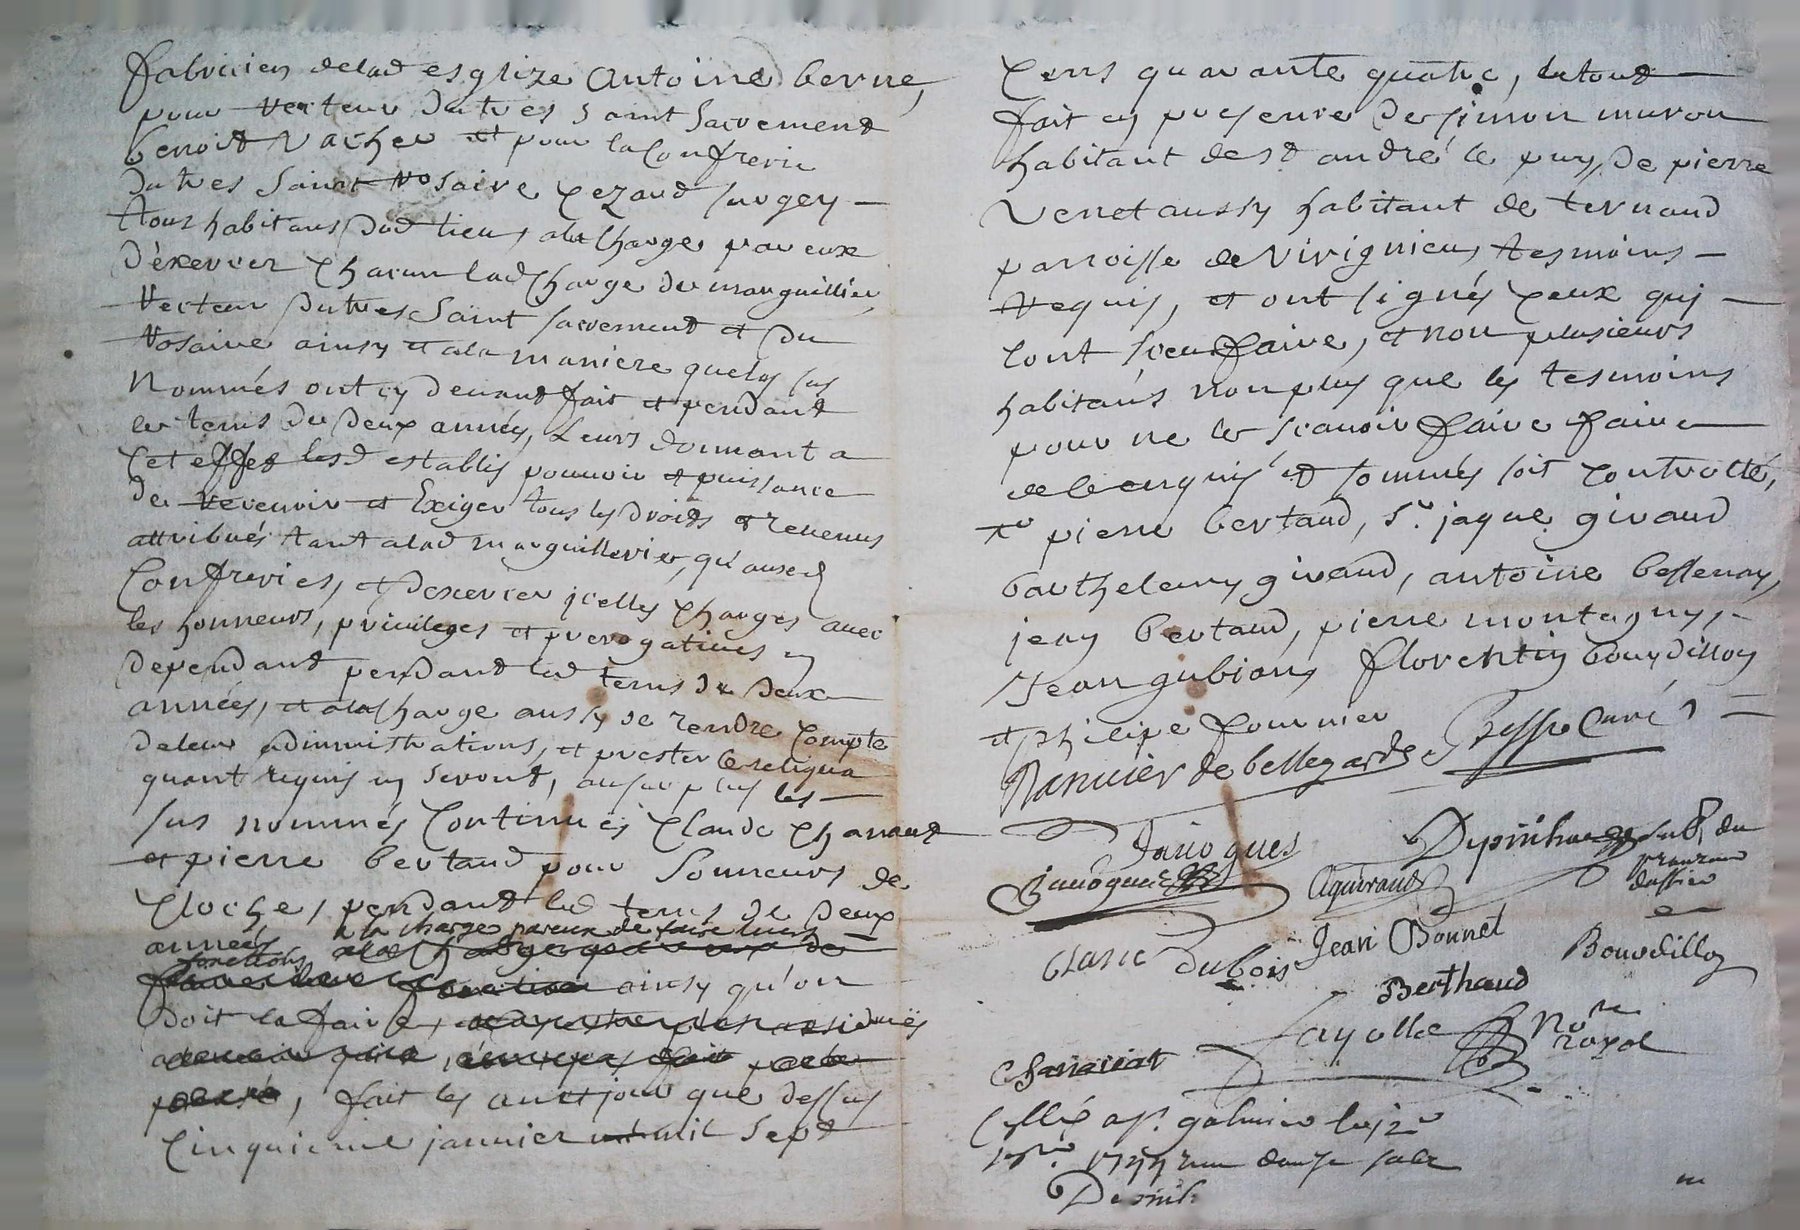 fabricien delad esglize Antoine berne,
pour recteur du tres saint sacrement
benoist vacher et pour la confrerie
du tres saint rosaire cezard surgey
tous habitans dud lieu, a la charge par eux
d'éxercer chacun lad charge de marguillier
recteur du tres saint sacrement et du
rosaire ainsy et a la maniere que les sus
nommés ont cy devant fait et pendant
le tems de deux années, leurs donnant a
cet effet lesd establis pouvoir et puissance
de recevoir et exiger tous les droits et revenus
attribués tant a lad marguillerie, qu'auxd
confreries, et d'exercer icelles charges avec
les honneurs, privileges et prerogatives en
dependant pendant led tems de deux
années, et a la charge aussy de rendre compte
de leur administrations, et prester le reliqua
quant requis en seront, au surplus les
sus nommés continués Claude Chanaud
et pierre bertaud pour sonneurs de
cloches, pendant led tems de deux
années a la charge par eux de faire leurs
fonctions ainsy qu'on
doit la faire,
fait les an et jour que dessus
cinquieme janvier mil sept
cens quarante quatre, le tout
fait en presence de simon muron
habitant de st andré le puy, de pierre
Verret aussy habitant de ternaud
parroisse de Virignieu, tesmoins
requis, et ont signés ceux qui
l'ont sceu faire, et non plusieurs
habitans non plus que les tesmoins
pour ne le scavoir faire faire
de ce enquis et sommés soit controllé,
pierre bertaud, sr. jaque giraud
barthelemy giraud, antoine bessenay,
jean bertaud, pierre montagny,
Jean gubian, florentin bourdillon
et philipe fournier
Ranvier de bellegarde Besse Curé
Janoques Dupin subt. du
Janoques Aguiraud procureur
d'office
Clanc Dubois Jean Bonnet Bourdillon
Berthaud
Chanavat Layolle Nore
royal
Cllé a st. galmier le 12e
1744 douze sols
Dupin